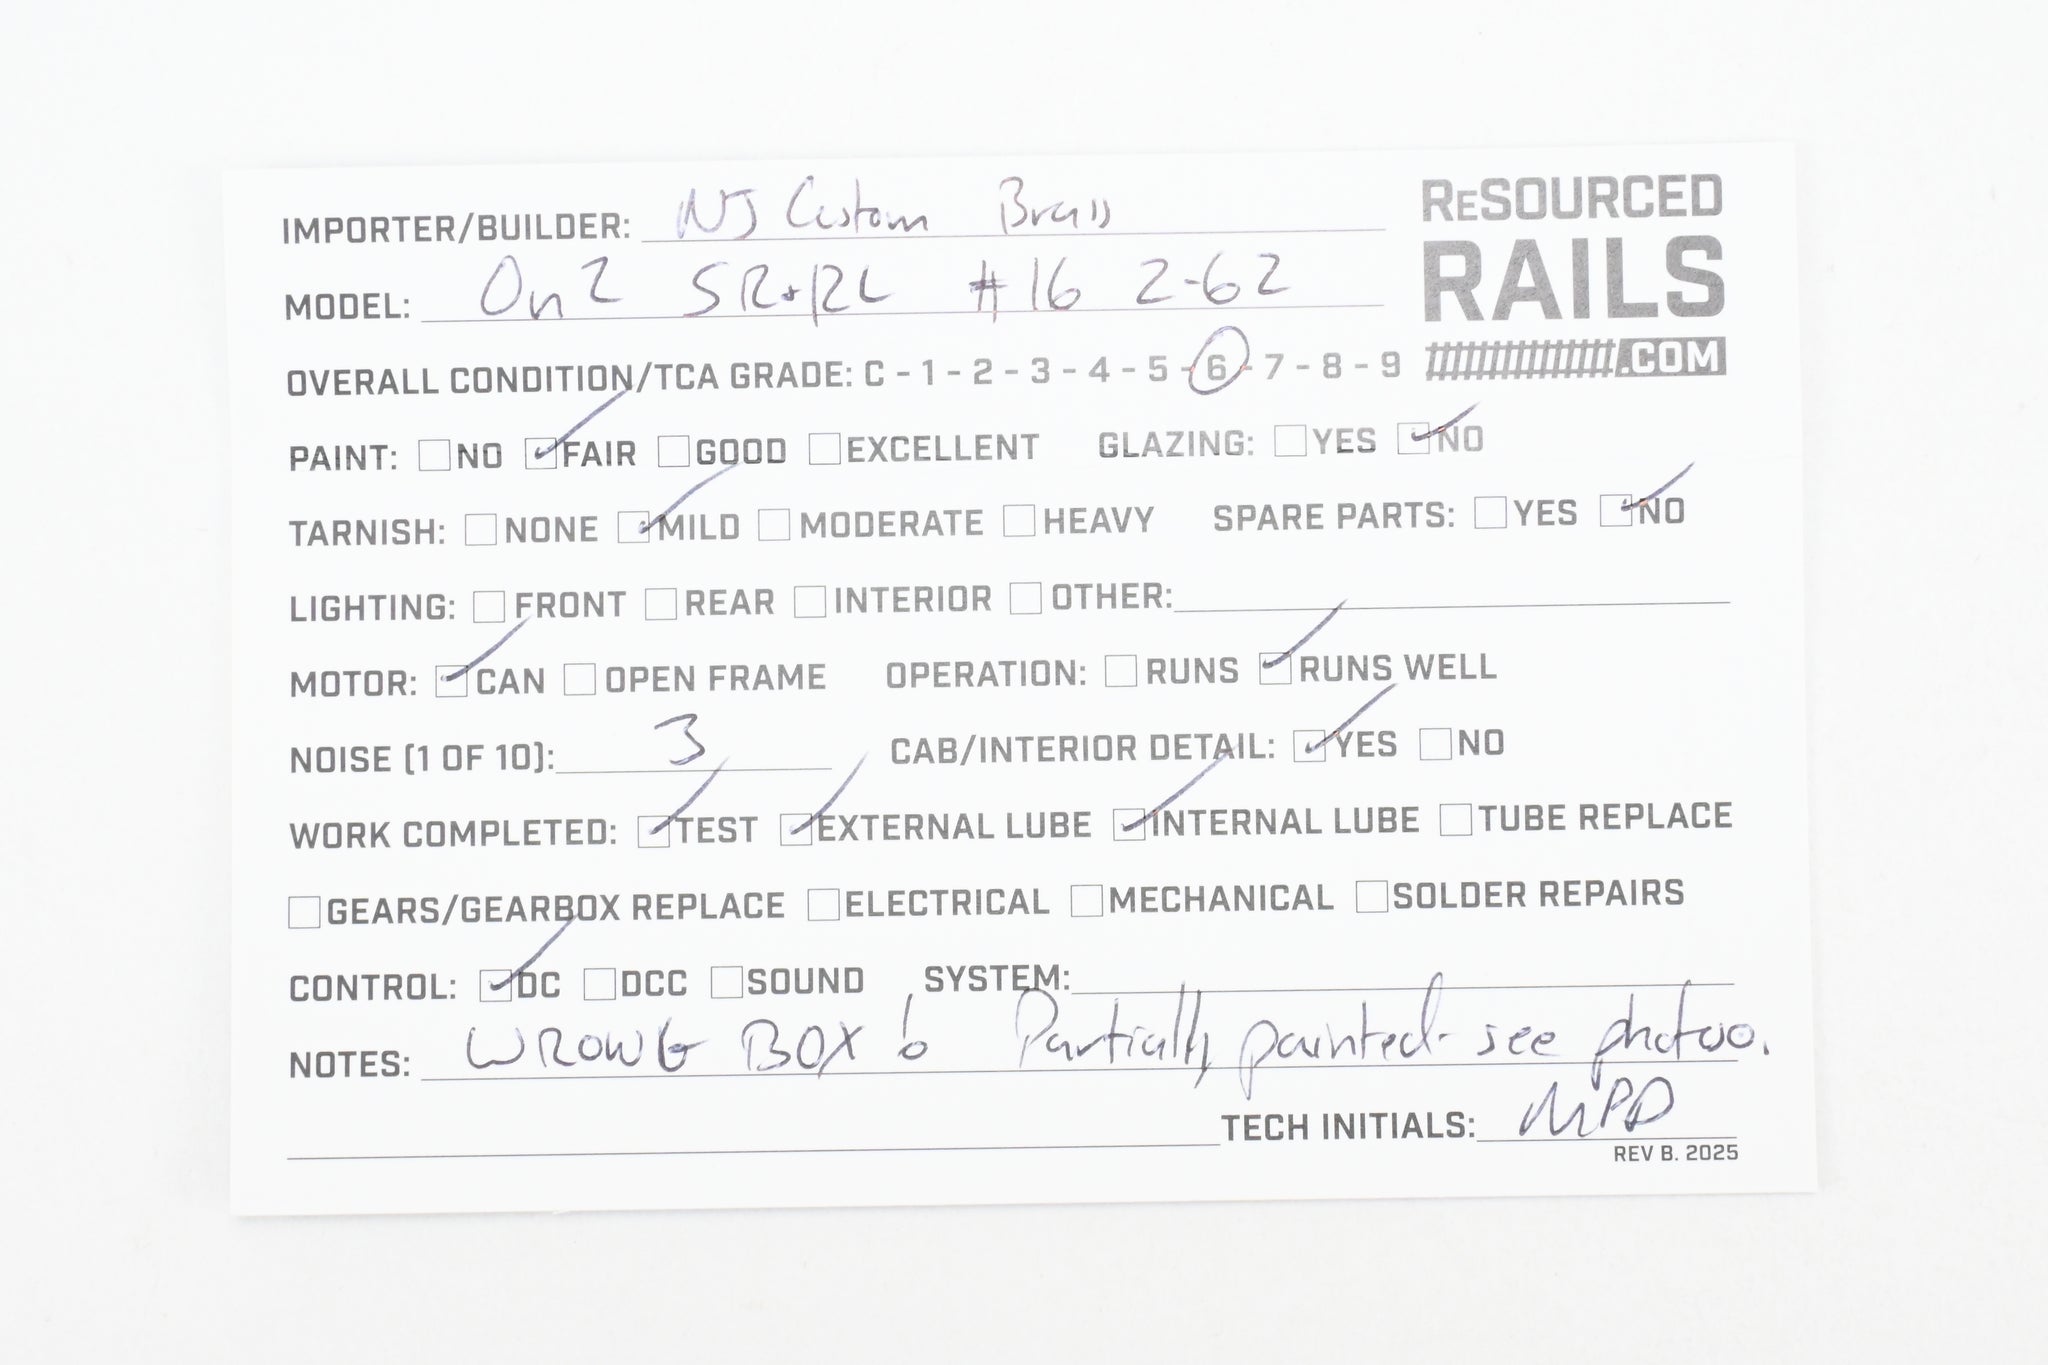 IMPORTER/BUILDER: NJ Custom Brass
RESOURCED
RAILS
.COM
MODEL: On2 SR+RL #16 2-62
OVERALL CONDITION/TCA GRADE: C - 1 - 2 - 3 - 4 - 5 - 6 - 7 - 8 - 9
PAINT: NO FAIR GOOD EXCELLENT GLAZING: YES NO
TARNISH: NONE MILD MODERATE HEAVY SPARE PARTS: YES NO
LIGHTING: FRONT REAR INTERIOR OTHER:
MOTOR: CAN OPEN FRAME OPERATION: RUNS RUNS WELL
NOISE (1 OF 10): 3 CAB/INTERIOR DETAIL: YES NO
WORK COMPLETED: TEST EXTERNAL LUBE INTERNAL LUBE TUBE REPLACE
GEARS/GEARBOX REPLACE ELECTRICAL MECHANICAL SOLDER REPAIRS
CONTROL: DC DCC SOUND SYSTEM:
NOTES: WRONG BOX! Partially painted - see photos.
TECH INITIALS: MPD
REV B. 2025